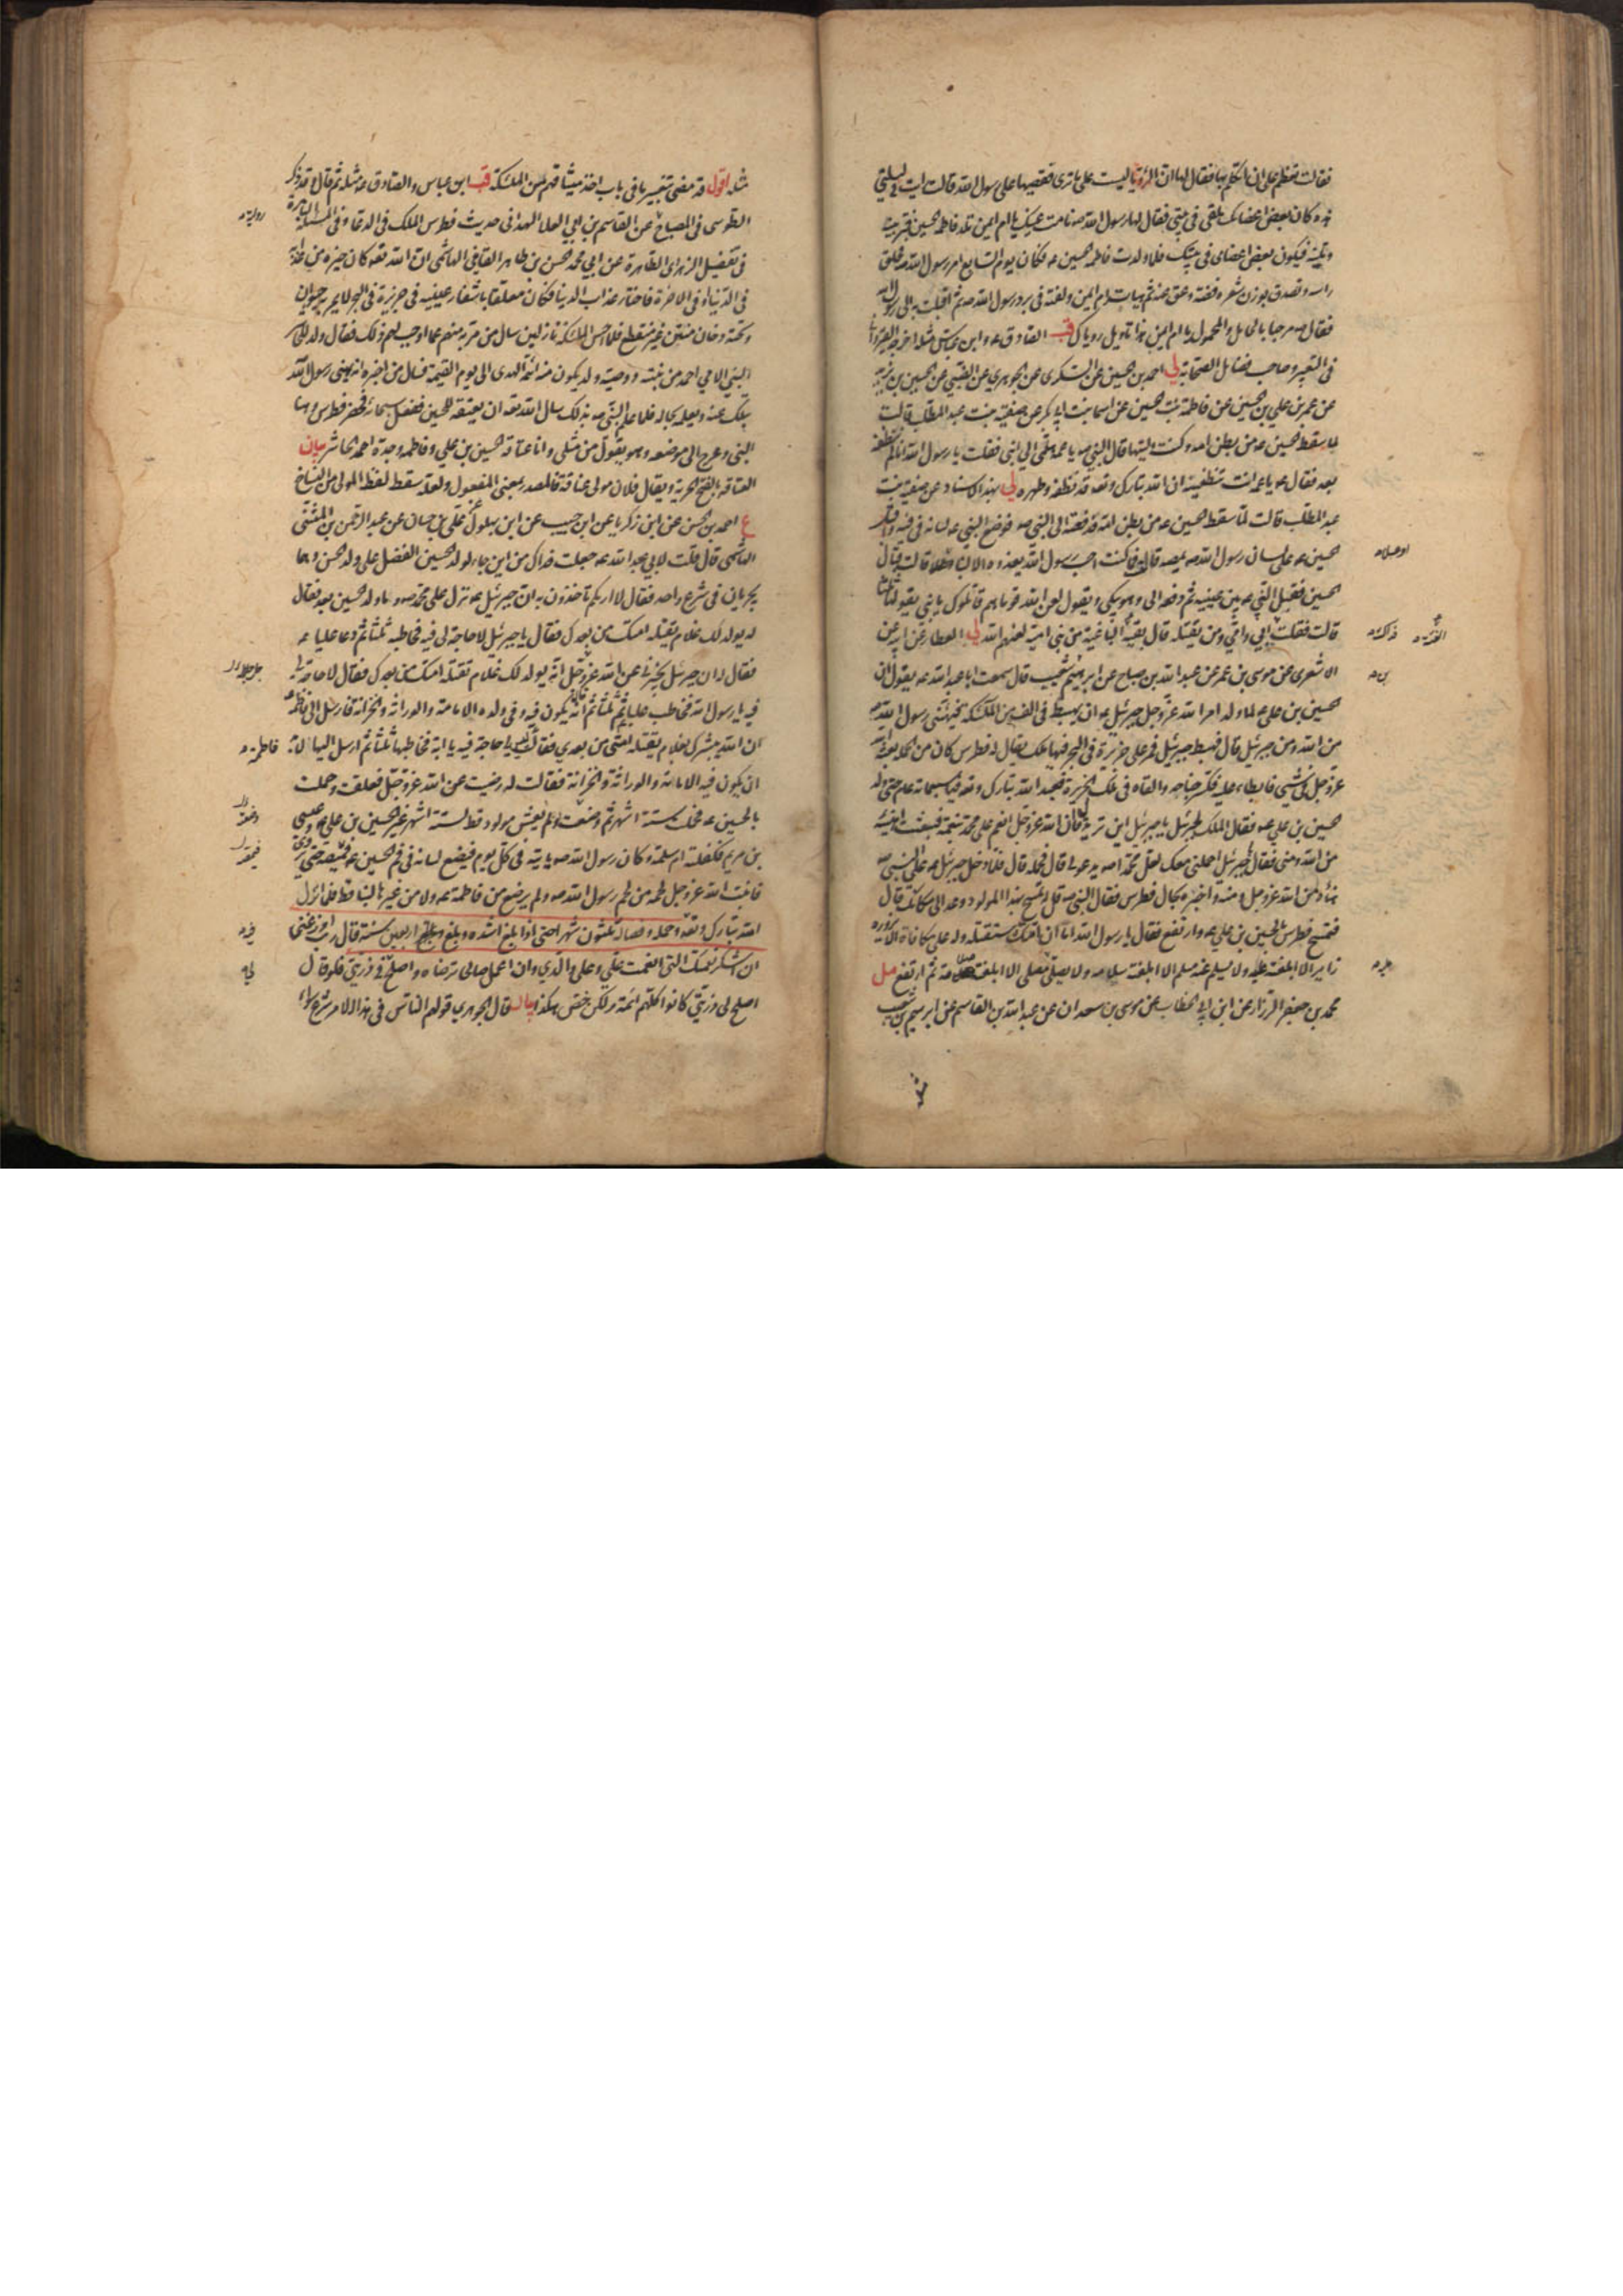 فقالت تعظم على ان اتكلم بها فقال لها ان الرؤيا ليست على ما ترى فقصيها على رسول الله قالت رايت في ليلتي
هذه كان بعض اعضائك ملقى في بيتي فقال لها رسول الله ص نامت عينك يا ام ايمن تلد فاطمة الحسين فتربينه
وتلبينه فيكون بعض اعضائي في بيتك فلما ولدت فاطمة الحسين ع فكان يوم السابع امر رسول الله ص فحلق
راسه وتصدق بوزن شعره فضة وعق عنه ثم هيأته ام ايمن ولفته في برد رسول الله ص ثم اقبلت به الى رسول الله
فقال ص مرحبا بالحامل والمحمول يا ام ايمن هذا تاويل رؤياك قب الصادق ع وابن عباس مثله اخرجه القيرواني
في التعبير وصاحب فضائل الصحابة لي احمد بن الحسين عن السكري عن الجوهري عن الضبي عن الحسين بن يزيد
عن عمر بن علي بن الحسين عن فاطمة بنت الحسين عن اسما بنت ابي بكر عن صفية بنت عبد المطلب قالت
لما سقط الحسين ع من بطن امه وكنت وليتها قال النبي ص يا عمة هلمي الي ابني فقلت يا رسول الله انا لم ننظفه
بعد فقال ع يا عمة انت تنظفينه ان الله تبارك وتعه قد نظفه وطهره لي بهذا الاسناد عن صفية بنت
عبد المطلب قالت لما سقط الحسين ع من بطن امه فدفعته الى النبي ص فوضع النبي ع لسانه في فيه واقبل
الحسين ع على لسان رسول الله ص يمصه قالت فما كنت احسب رسول الله يغذوه الا لبنا وعسلا قالت فبال
الحسين فقبل النبي ع بين عينيه ثم دفعه الي وهو يبكي ويقول لعن الله قوما هم قاتلوك يا بني يقولها ثلثا
قالت فقلت ابي وامي ومن يقتله قال بقية الباغية من بني امية لعنهم الله لي العطار عن ابيه عن
الاشعري عن موسى بن عمر عن عبد الله بن صباح عن ابرهيم شعيب قال سمعت ابا عبد الله ع يقول ان
الحسين بن علي ع لما ولد امر الله عز وجل جبرئيل ع ان يهبط في الف من الملئكة فيهنئ رسول الله ص
من الله ومن جبرئيل قال فهبط جبرئيل فمر على جزيرة في البحر فيها ملك يقال له فطرس كان من الحملة بعثه الله
عز وجل في شئ فابطاء عليه فكسر جناحه والقاه في تلك الجزيرة فعبد الله تبارك وتعه فيها سبعمائة عام حتى ولد
الحسين بن علي ع فقال الملك لجبرئيل يا جبرئيل اين تريد قال ان الله عز وجل انعم على محمد بنعمة فبعثت اهنئه
من الله ومني فقال يا جبرئيل احملني معك لعل محمدا ص يدعو لي قال فحمله قال فلما دخل جبرئيل ع على النبي ص
هناه من الله عز وجل ومنه واخبره بحال فطرس فقال النبي ص قل له تمسح بهذا المولود وعد الى مكانك قال
فتمسح فطرس بالحسين بن علي ع وارتفع فقال يا رسول الله اما ان امتك ستقتله وله علي مكافاة الا يزوره
زاير الا ابلغته عليه ولا يسلم عليه مسلم الا ابلغته سلامه ولا يصلي مصلي الا ابلغته صلاته ثم ارتفع مل
محمد بن جعفر الرزاز عن ابن ابي الخطاب عن موسى بن سعدان عن عبد الله بن القاسم عن ابرهيم بن شعيب
مثله
مثله اقول قد مضى تغييرنا في باب اخذ ميثاقهم من الملئكة قب ابن عباس والصادق ع مثله ثم قال وقد ذكر
الطوسي في المصباح عن القاسم بن ابي العلا الهمداني حديث فطرس الملك في الدعاء وفي المسئلة الباهرة
في تفضيل الزهراء الطاهرة عن ابي محمد الحسن بن طاهر القايني الهاشمي ان الله تعه كان خيره من عذابه
في الدنيا او في الاخرة فاختار عذاب الدنيا فكان معلقا باشفار عينيه في جزيرة في البحر لا يمر به حيوان
وتحته دخان منتن غير منقطع فلما احس الملئكة نازلين سال من مر به منهم عما اوجب لهم ذلك فقال ولد للحاشر
النبي الامي احمد من بنته ووصيه ولد يكون منه ائمة الهدى الى يوم القيمة فسال من اخبره انه يهني رسول الله
بتلك عنه ويعلمه بحاله فلما علم النبي ص بذلك سال الله تعه ان يعتقه للحسين ففعل سبحانه فحضر فطرس وهنا
النبي وعرج الى موضعه وهو يقول من مثلي وانا عتاقة الحسين بن علي وفاطمه وجده احمد الحاشر بيان
العتاقة بالفتح الحرية ويقال فلان مولى عتاقة فالمصدر بمعنى المفعول ولعله سقط لفظ المولى من النساخ
ع احمد بن الحسن عن ابن زكريا عن ابن حبيب عن ابن بهلول عن علي بن حسان عن عبد الرحمن بن المثنى
الهاشمي قال قلت لابي عبد الله ع جعلت فداك من اين جاء لولد الحسين الفضل على ولد الحسن وهما
يجريان في شرع واحد فقال لا اريكم تاخذون به ان جبرئيل ع نزل على محمد ص وما ولد الحسين بعد فقال
له يولد لك غلام يقتله امتك من بعدك فقال يا جبرئيل لا حاجة لي فيه فخاطبه ثلثا ثم دعا عليا ع
فقال له ان جبرئيل يخبرني عن الله عز وجل انه يولد لك غلام تقتله امتك من بعدك فقال لا حاجة لي
فيه يا رسول الله فخاطب عليا ع ثلثا ثم قال انه يكون فيه وفي ولده الامامة والوراثة والخزانة فارسل الى فاطمة ع
ان الله يبشرك بغلام يقتله امتي من بعدي فقالت ليس لي حاجة فيه يا ابة فخاطبها ثلثا ثم ارسل اليها لا بد
ان يكون فيه الامامة والوراثة والخزانة فقالت له رضيت عن الله عز وجل فعلقت وحملت
بالحسين ع فحملت ستة اشهر ثم وضعته ولم يعش مولود قط لستة اشهر غير الحسين بن علي ع وعيسى
بن مريم فكفلته ام سلمة وكان رسول الله ص ياتيه في كل يوم فيضع لسانه في فم الحسين ع فيمصه حتى يروى
فانبت الله عز وجل لحمه من لحم رسول الله ص ولم يرضع من فاطمة ع ولا من غيرها لبنا قط فلما انزل
الله تبارك وتعه وحمله وفصاله ثلثون شهرا حتى اذا بلغ اشده وبلغ اربعين سنة قال رب اوزعني
ان اشكر نعمتك التي انعمت علي وعلى والدي وان اعمل صالحا ترضاه واصلح لي في ذريتي فلو قال
اصلح لي ذريتي كانوا كلهم ائمة ولكن خص هكذا بيان قال الجوهري قولهم الناس في هذا الامر شرع سواء